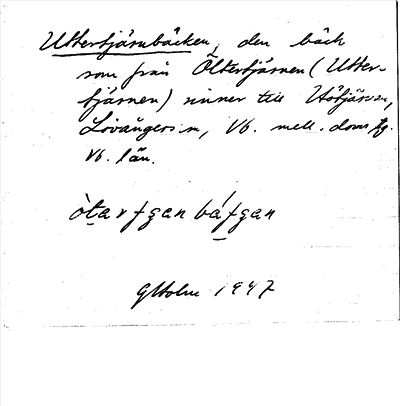 Uttertjärnbäcken, den bäck
som från Öltertjärnen (Utter-
tjärnen) rinner till Utötjärnen,
Lövångers sn, Vb. mell. doms fg.
Vb. län.
òt̲a r ƒgan báƒgan
GHolm 1947